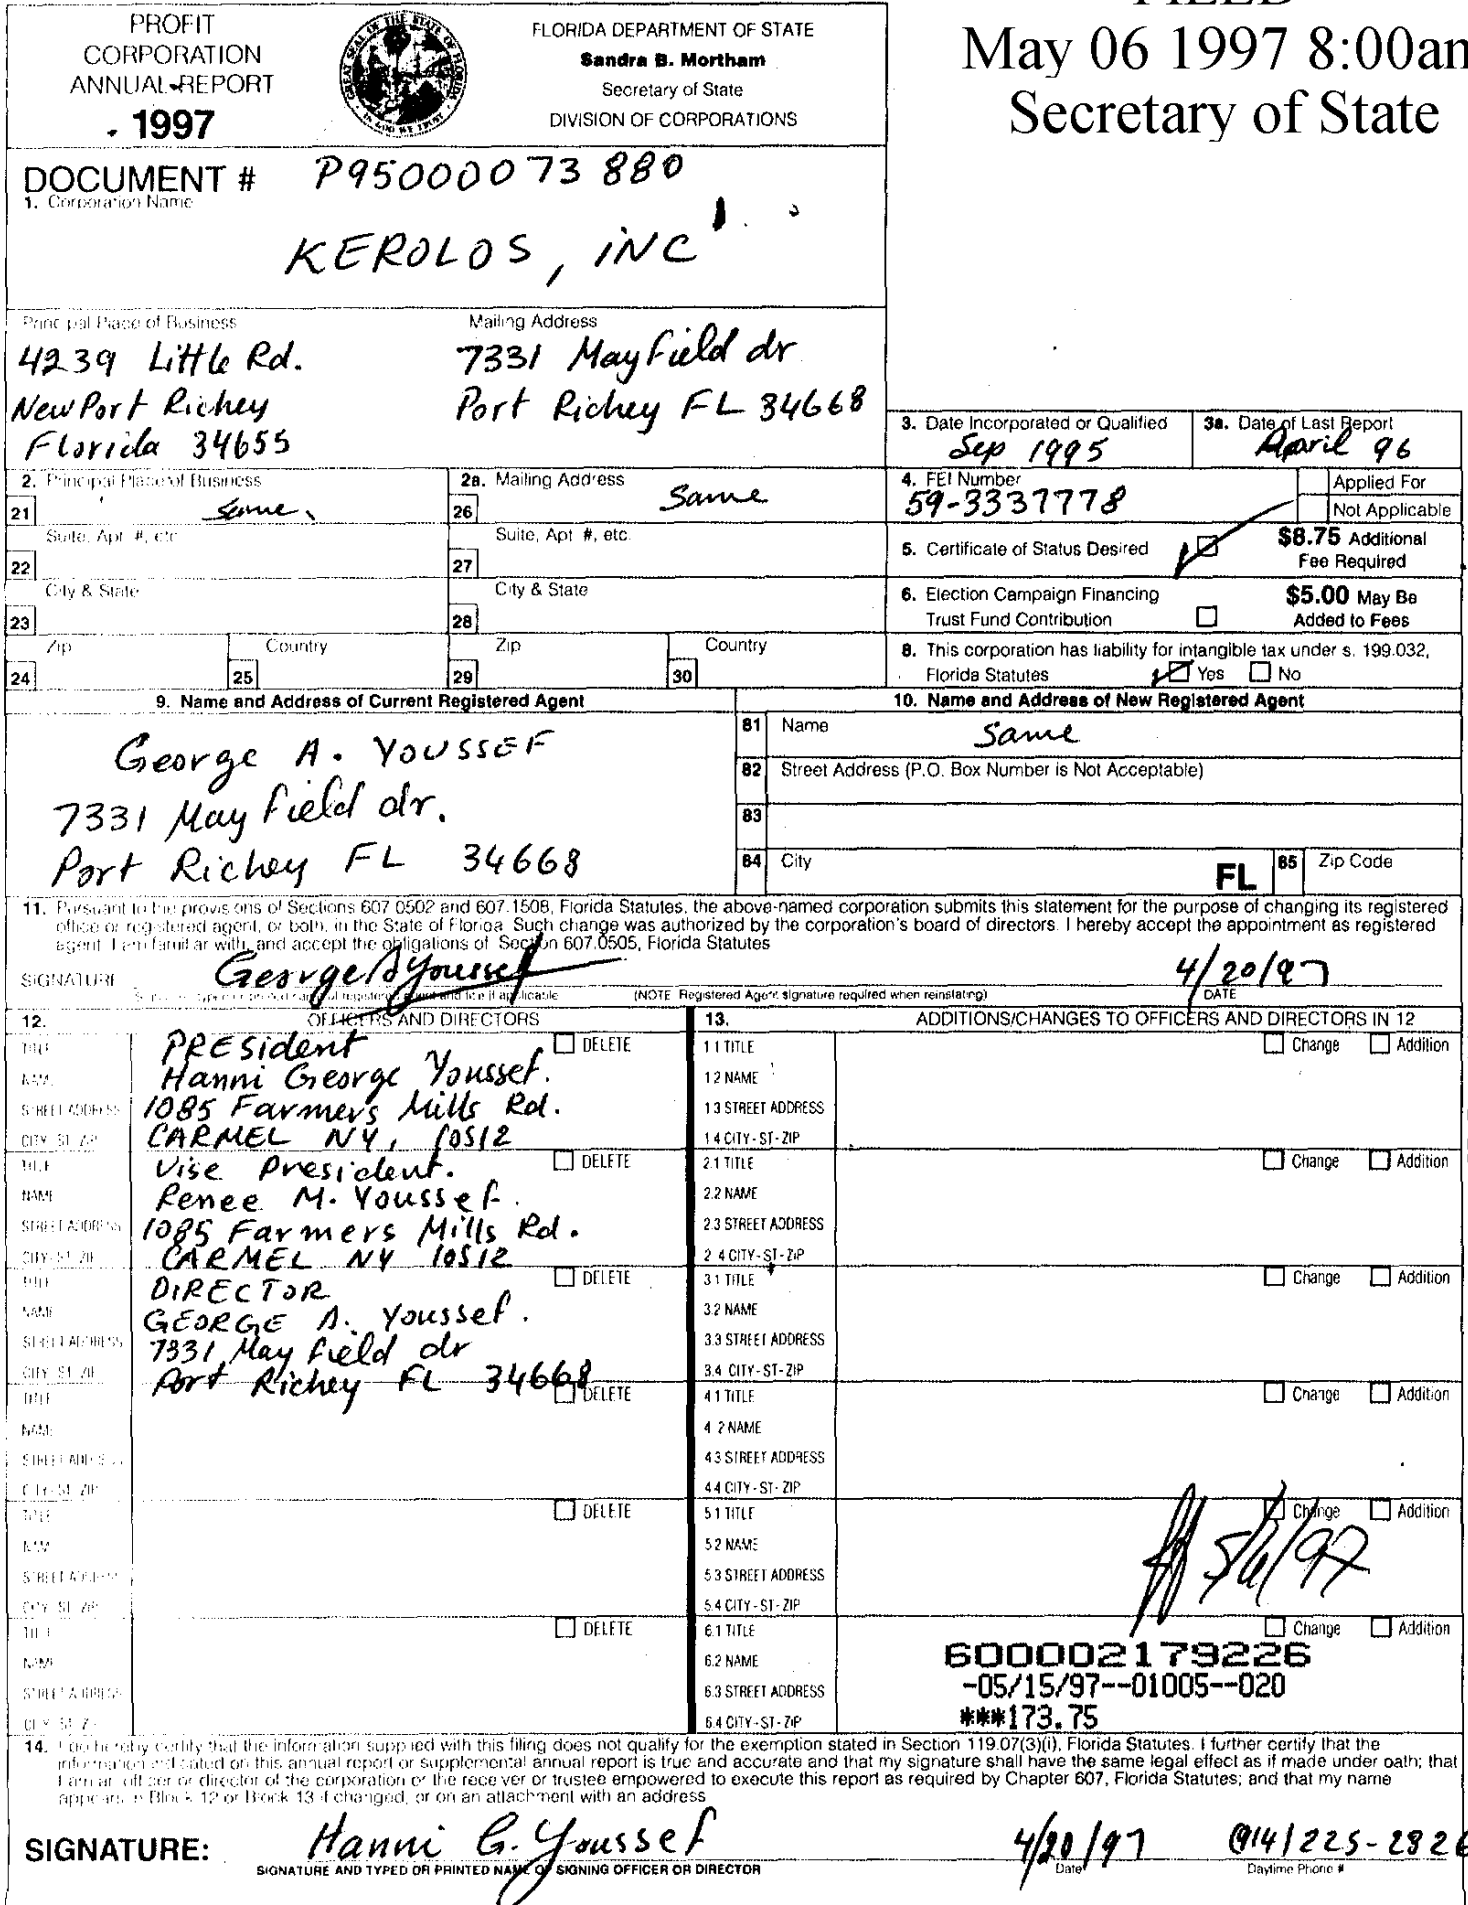 PROFIT
CORPORATION
ANNUAL REPORT
1997
FLORIDA DEPARTMENT OF STATE
Sandra B. Mortham
Secretary of State
DIVISION OF CORPORATIONS
FILED
May 06 1997 8:00am
Secretary of State
DOCUMENT # P95000073880
1. Corporation Name
KEROLOS, INC
Principal Place of Business
4239 Little Rd.
New Port Richey
Florida 34655
Mailing Address
7331 Mayfield dr
Port Richey FL 34668
3. Date Incorporated or Qualified
Sep 1995
3a. Date of Last Report
April 96
2. Principal Place of Business
21 Same
2a. Mailing Address
26 Same
4. FEI Number
59-3337778
Applied For
Not Applicable
Suite, Apt #, etc
22
Suite, Apt #, etc.
27
5. Certificate of Status Desired
$8.75 Additional
Fee Required
City & State
23
City & State
28
6. Election Campaign Financing
Trust Fund Contribution
$5.00 May Be
Added to Fees
Zip
24
Country
25
Zip
29
Country
30
8. This corporation has liability for intangible tax under s. 199.032,
Florida Statutes Yes No
9. Name and Address of Current Registered Agent
George A. YOUSSEF
7331 Mayfield dr.
Port Richey FL 34668
10. Name and Address of New Registered Agent
81 Name Same
82 Street Address (P.O. Box Number is Not Acceptable)
83
84 City FL 85 Zip Code
11. Pursuant to the provisions of Sections 607.0502 and 607.1508, Florida Statutes, the above-named corporation submits this statement for the purpose of changing its registered
office or registered agent, or both, in the State of Florida. Such change was authorized by the corporation's board of directors. I hereby accept the appointment as registered
agent. I am familiar with, and accept the obligations of Section 607.0505, Florida Statutes
SIGNATURE George A Youssef 4/20/97
(NOTE: Registered Agent signature required when reinstating) DATE
12. OFFICERS AND DIRECTORS
TITLE PRESident DELETE
NAME Hanni George Youssef.
STREET ADDRESS 1085 Farmers Mills Rd.
CITY-ST-ZIP CARMEL NY, 10512
TITLE Vise President. DELETE
NAME Renee M. Youssef.
STREET ADDRESS 1085 Farmers Mills Rd.
CITY-ST-ZIP CARMEL NY 10512
TITLE DIRECTOR DELETE
NAME GEORGE A. Youssef.
STREET ADDRESS 7331 Mayfield dr
CITY-ST-ZIP Port Richey FL 34668
TITLE DELETE
NAME
STREET ADDRESS
CITY-ST-ZIP
TITLE DELETE
NAME
STREET ADDRESS
CITY-ST-ZIP
TITLE DELETE
NAME
STREET ADDRESS
CITY-ST-ZIP
13. ADDITIONS/CHANGES TO OFFICERS AND DIRECTORS IN 12
1.1 TITLE Change Addition
1.2 NAME
1.3 STREET ADDRESS
1.4 CITY-ST-ZIP
2.1 TITLE Change Addition
2.2 NAME
2.3 STREET ADDRESS
2.4 CITY-ST-ZIP
3.1 TITLE Change Addition
3.2 NAME
3.3 STREET ADDRESS
3.4 CITY-ST-ZIP
4.1 TITLE Change Addition
4.2 NAME
4.3 STREET ADDRESS
4.4 CITY-ST-ZIP
5.1 TITLE Change Addition
5.2 NAME
5.3 STREET ADDRESS 5/6/97
5.4 CITY-ST-ZIP
6.1 TITLE Change Addition
6.2 NAME 6000002179226
6.3 STREET ADDRESS -05/15/97--01005--020
6.4 CITY-ST-ZIP ***173.75
14. I do hereby certify that the information supplied with this filing does not qualify for the exemption stated in Section 119.07(3)(i), Florida Statutes. I further certify that the
information indicated on this annual report or supplemental annual report is true and accurate and that my signature shall have the same legal effect as if made under oath; that
I am an officer or director of the corporation or the receiver or trustee empowered to execute this report as required by Chapter 607, Florida Statutes; and that my name
appears in Block 12 or Block 13 if changed, or on an attachment with an address
SIGNATURE: Hanni G. Youssef 4/20/97 (914) 225-2826
SIGNATURE AND TYPED OR PRINTED NAME OF SIGNING OFFICER OR DIRECTOR Date Daytime Phone #